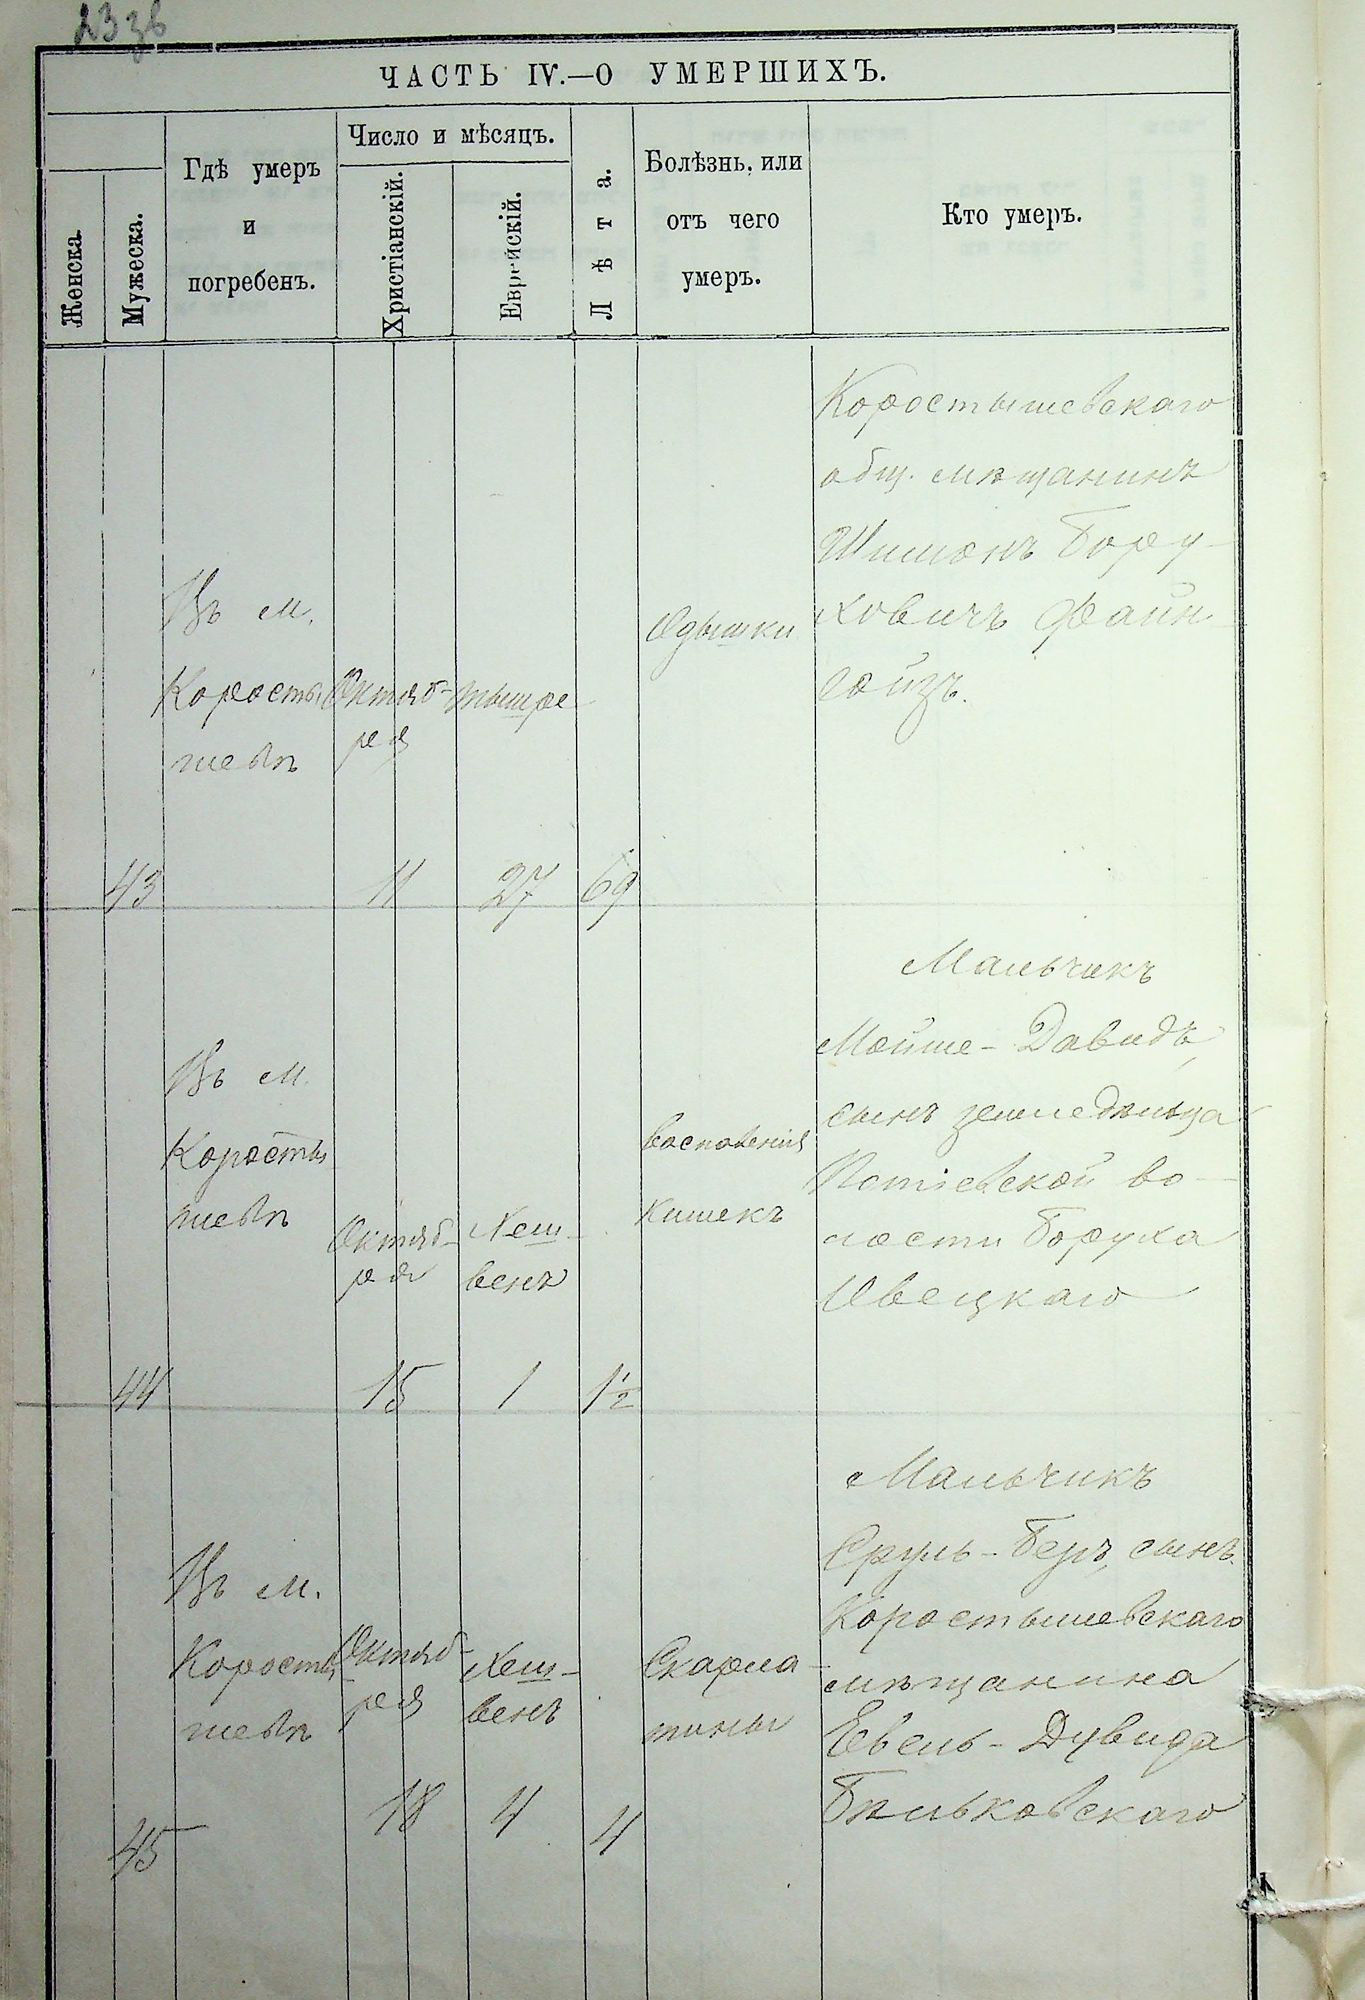 23 зв
ЧАСТЬ IV.—О УМЕРШИХЪ.
Женска.
Мужеска.
Гдѣ умеръ
и
погребенъ.
Число и мѣсяцъ.
Христіанскій.
Еврейскій.
Лѣта.
Болѣзнь, или
отъ чего
умеръ.
Кто умеръ.
43
Въ м.
Коросты
шевѣ
Октяб-
ря
11
тышре
27
69
Одышки
Коростышевскаго
общ. мѣщанинъ
Шимонъ Бору-
ховичъ Файн-
гойзъ.
44
Въ м.
Коросты
шевѣ
Октяб-
ря
15
Хеш-
венъ
1
1½
Воспаленія
Кишекъ
Мальчикъ
Мойше-Давидъ,
сынъ земледѣльца
Потіевской во-
лости Боруха
Овецкаго
45
Въ м.
Коросты
шевѣ
Октяб-
ря
18
Хеш-
венъ
4
4
Скарла-
тины
Мальчикъ
Сруль-Беръ, сынъ
Коростышевскаго
мѣщанина
Евель-Дувида
Бѣльковскаго